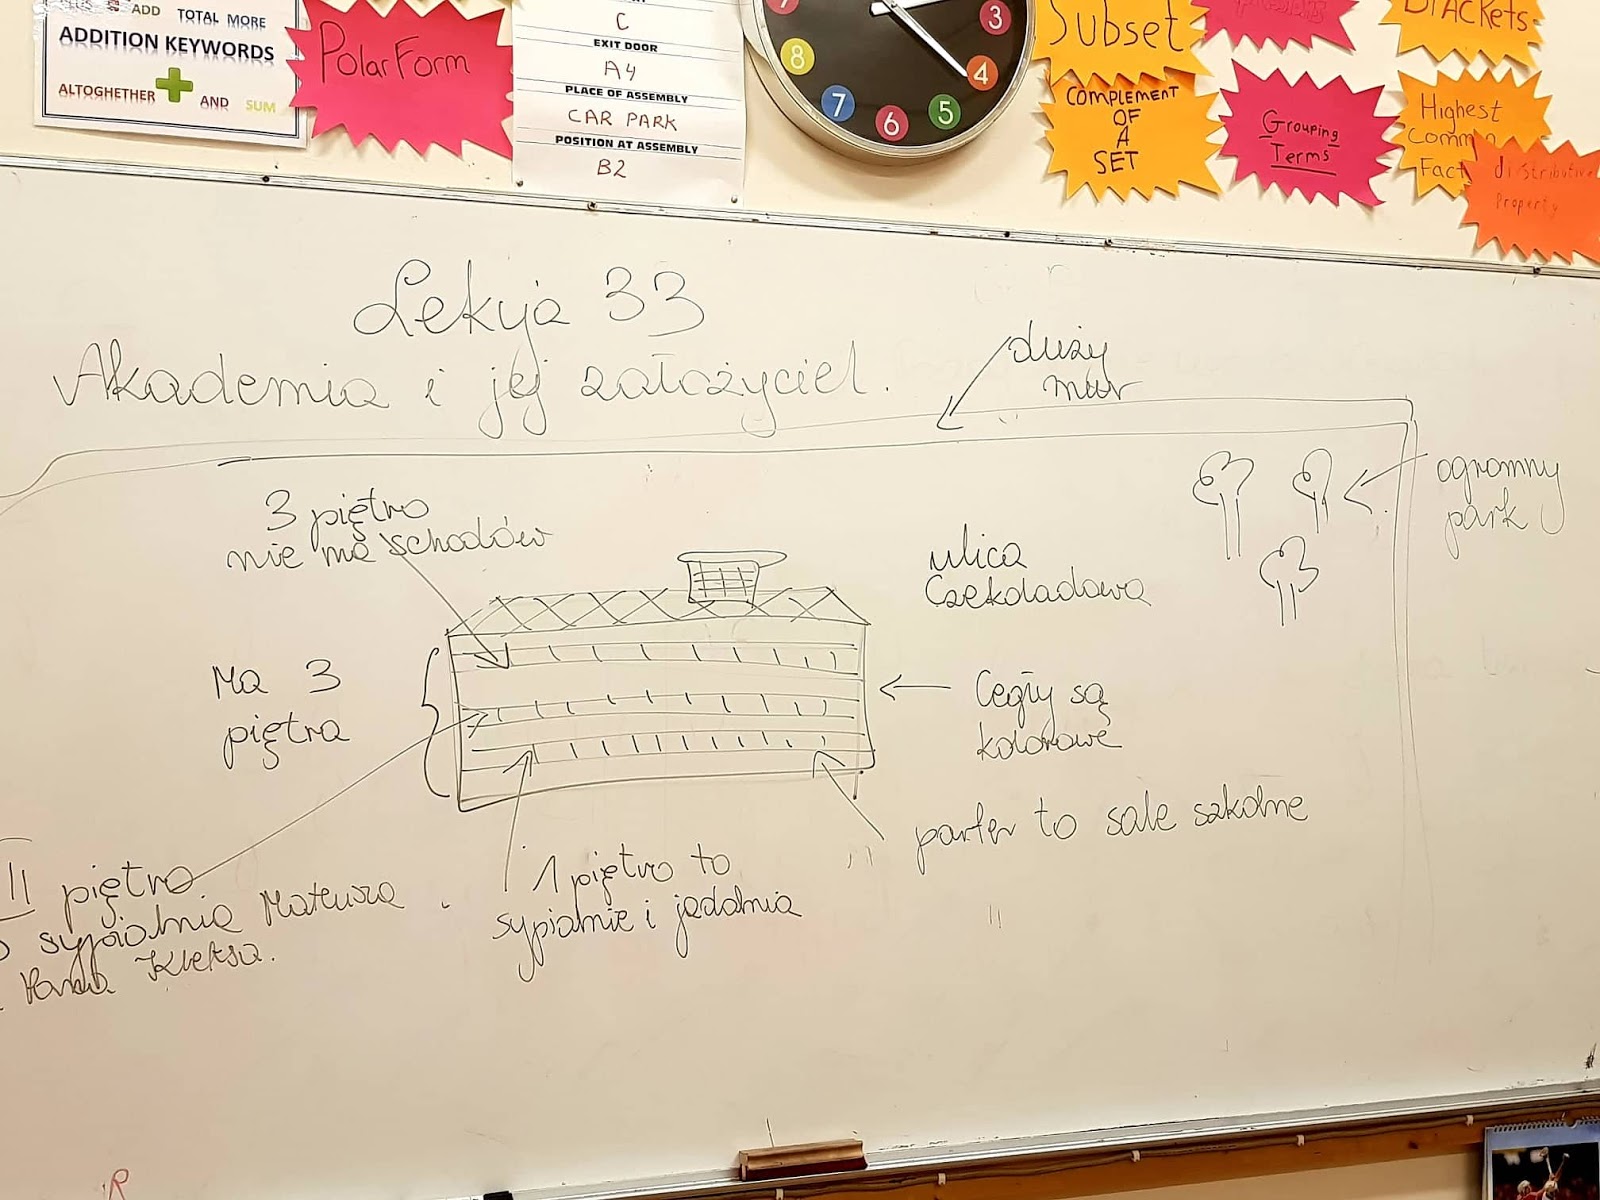 ADD TOTAL MORE
ADDITION KEYWORDS
ALTOGHETHER + AND SUM
Polar Form
C
EXIT DOOR
A4
PLACE OF ASSEMBLY
CAR PARK
POSITION AT ASSEMBLY
B2
3
4
5
6
7
8
Subset
COMPLEMENT
OF
A
SET
Grouping
Terms
BrACKETS
Highest
Common
Fact
distributive
Property
Lekcja 33
Akademia i jej założyciel.
duży
mur
ogromny
park
3 piętro
nie ma schodów
ulica
Czekoladowa
Ma 3
piętra
Cegły są
kolorowe
parter to sale szkolne
II piętro
sypialnia Mateusza
Pana Kleksa.
1 piętro to
sypialnie i jadalnia
R